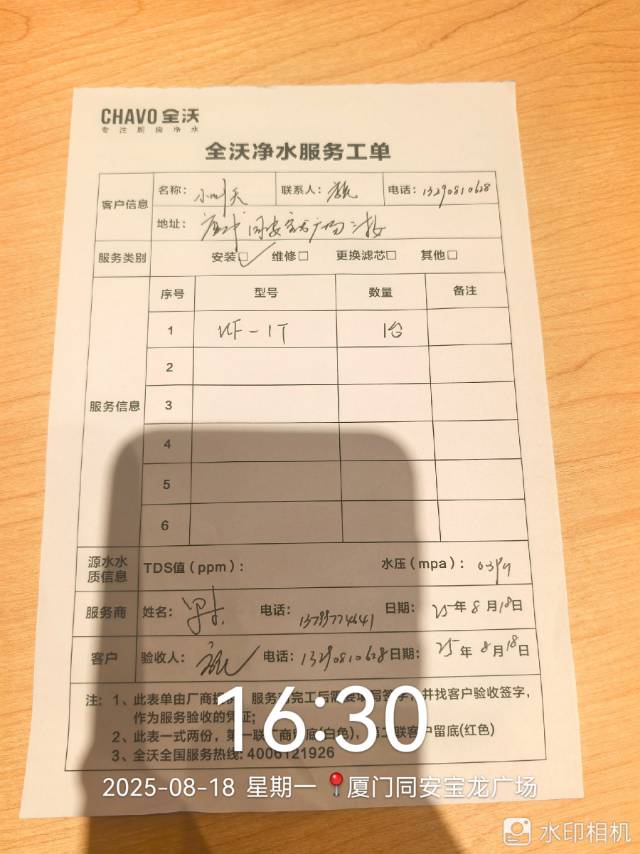 CHAVO 全沃
专注厨房净水
全沃净水服务工单
客户信息
名称: 联系人: 电话: 13290810628
地址: 同安宝龙广场
服务类别 安装□ 维修□ 更换滤芯□ 其他□
服务信息
序号 型号 数量 备注
1 UF-1T 1台
2
3
4
5
6
源水水质信息 TDS值(ppm): 水压(mpa):
服务商 姓名: 电话: 13797774641 日期: 25年8月18日
客户 验收人: 电话: 13290810628 日期: 25年8月18日
注: 1、此表单由厂商提 服务 完工后需要 写签字,并找客户验收签字,
作为服务验收的凭证;
2、此表一式两份, 第一联厂商 底(白色), 二联客户留底(红色)
3、全沃全国服务热线: 4006121926
16:30
2025-08-18 星期一 厦门同安宝龙广场
水印相机